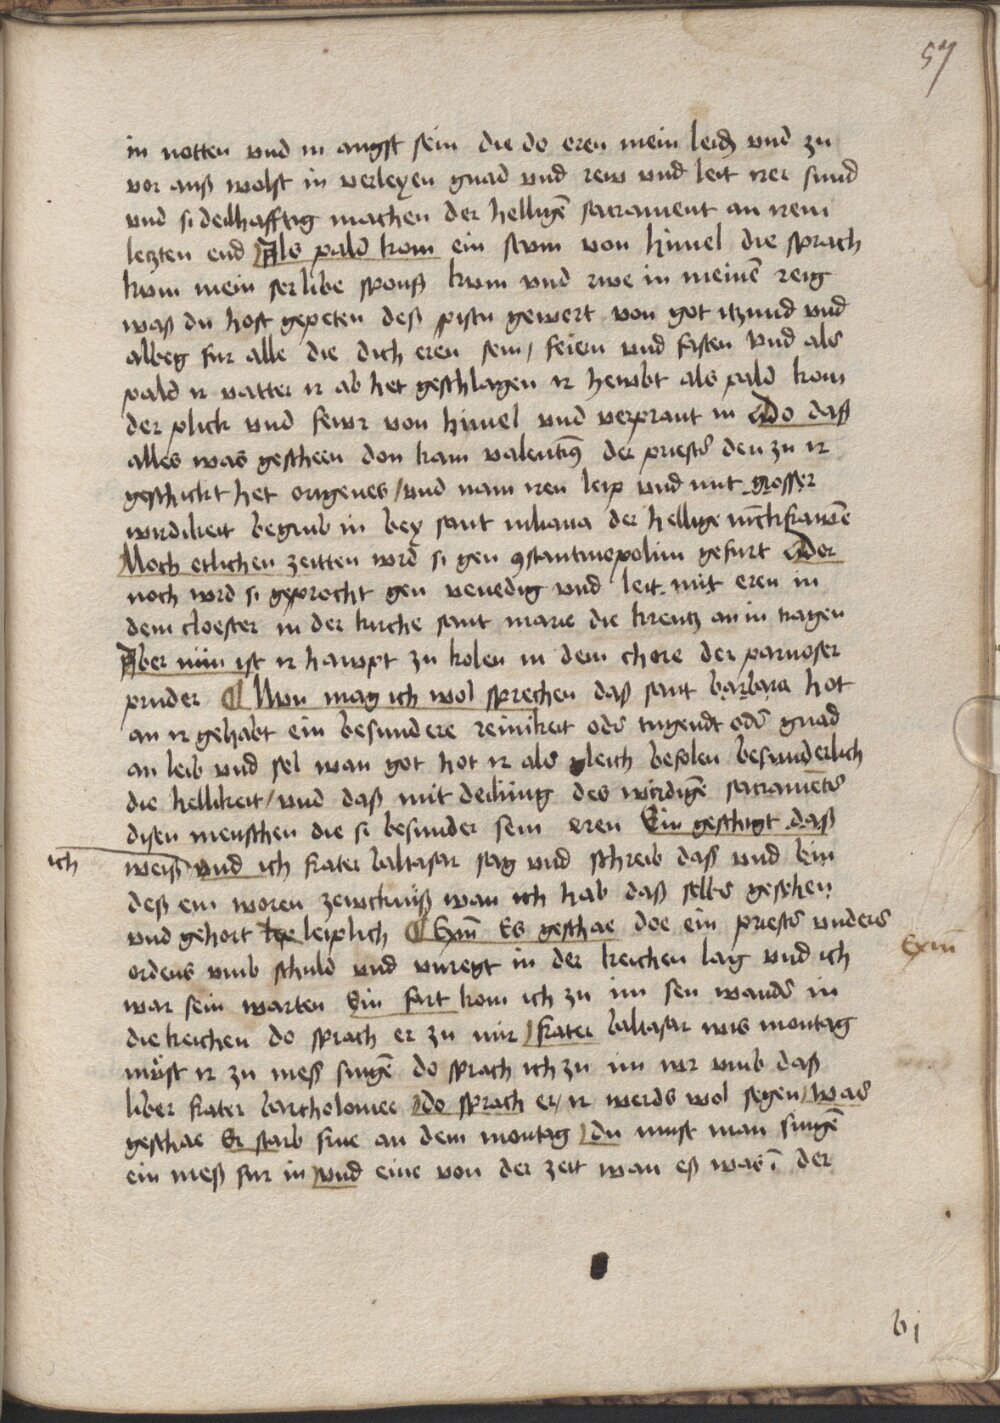 57
in notten vnd in angst sein die do eren mein leidñ vnd zu
vor auß wolst in verleyen gnad vnd rew vnd leit irer sund
vnd si deilhafftig machen der helligē sacrament an irem
letzten end Als pald kom ein stim von himel die sprach
kvm mein ser libe spouß kvm vnd rwe in meinē reig
waß du host gepeten deß pistu gewert von got itzund vnd
albeg fur alle die dich eren sein, feiern vnd fasten Vnd als
pald ir vatter ir ab het geschlagen ir hewbt als pald kom
der plick vnd fewr von himel vnd verprant in Do daß
alles was gescheen don kam valentin9 der priester den zu ir
geschickt het origenes / vnd nam iren leip vnd mit grosser
wirdikeit begrub in bey sant iuliana der hellige iuckfrawē
Noch etlichen zeitten wrd si gen 9stantinopolim gefurt Dor
noch wrd si geprocht gen venedig vnd leit mit eren in
dem cloester in der kirche sant marie die kreutz an in tragen
Aber nün ist ir hawpt zu kolen in dem chore der parvoser
pruder ¶ Nvn mag ich wol sprechen daß sant barbara hot
an ir gehabt ein besundere reinikeit oder tugendt oder gnad
an leib vnd sel wan got hot ir als gleich befolen besunderlich
die hellikeit / vnd daß mit deilüng des wirdigē sacramēts
disen menschen die si besunder sein eren Ein geschigt daß
ich
weiß vnd ich frater baltasar sag vnd schreib daß vnd bin
deß ein woren zewcknüß wan ich hab daß selbs gesehen
vnd gehort leiplich ¶ Exm̄ Es geschae doe ein priester vnders
Exm̄
ordens vmb schuld vnd vnregt in der keichen lag vnd ich
war sein warten Ein fart kom ich zu im sen wander in
die keichen do sprach er zu mir / frater baltasar wis montag
müst ir zu mess singē do sprach ich zu im wir vmb daß
liber frater bartholomee / do sprach er / ir werds wol segen / was
geschae Er starb sine an dem montag / du must man singē
ein meß fur in / vnd eine von der zeit wan eß was ī der
b i